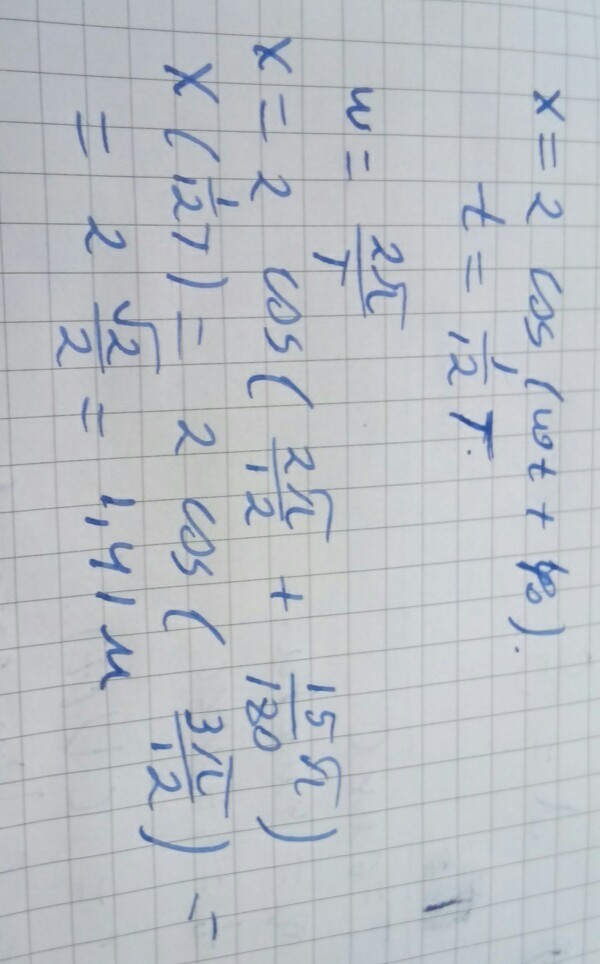 x = 2 cos (ωt + φ₀).
t = 1/12 T.
ω = 2π/T
x = 2 cos ( 2π/12 + 15π/180 )
x ( 1/12 T ) = 2 cos ( 3π/12 ) =
= 2 √2/2 = 1,41 м